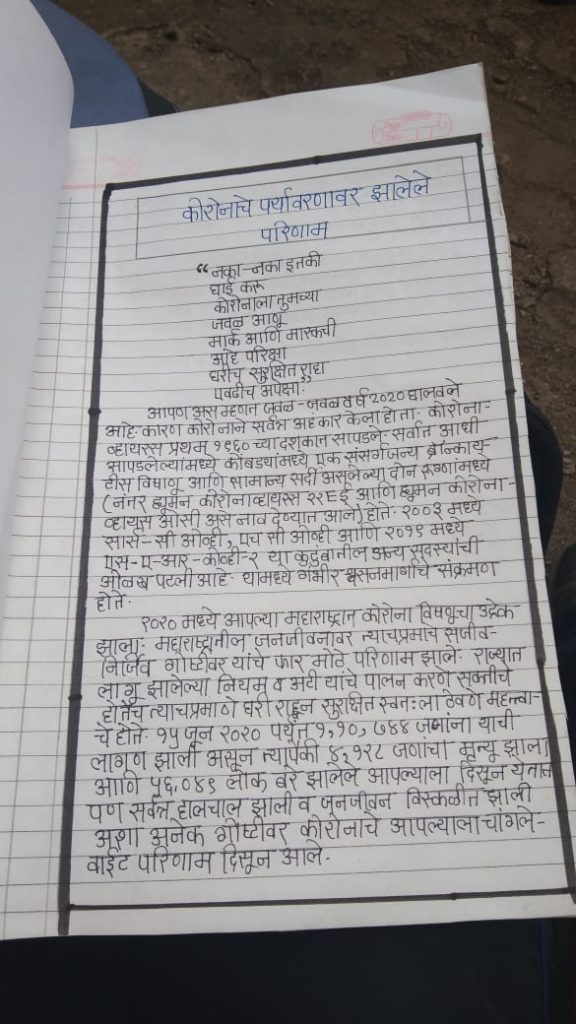 कोरोनाचे पर्यावरणावर झालेले
परिणाम
“नका-नका इतकी
घाई करू
कोरोनाला तुमच्या
जवळ आणू
मार्क आणि मास्कची
आहे परिक्षा
घरीच सुरक्षित राहा
एवढीच अपेक्षा.”
आपण असं म्हणत जवळ-जवळ वर्ष 2020 घालवले
आहे. कारण कोरोनाने सर्वत्र अहंकार केला होता. कोरोना-
व्हायरस प्रथम १९६० च्या दशकात सापडले. सर्वात आधी
आपडलेल्यांमध्ये कोंबड्यांमध्ये एक संसर्गजन्य ब्रॉन्काय-
टीस विषाणू आणि सामान्य सर्दी असलेल्या दोन रुग्णांमध्ये
(नंतर ह्यूमन कोरोनाव्हायरस २२९ई आणि ह्युमन कोरोना-
व्हायरस ओसी असे नाव देण्यात आले) होते. २००३ मध्ये
सार्स-सी ओव्ही, एच सी ओव्ही आणि २०१९ मध्ये
एस-ए-आर-कोव्ही-२ या कुटुंबातील अन्य सदस्यांची
ओळख पटली आहे. यामध्ये गंभीर श्वसनमार्गाचे संक्रमण
होते.
२०२० मध्ये आपल्या महाराष्ट्रात कोरोना विषणूचा उद्रेक
झाला. महाराष्ट्रातील जनजीवनावर त्याचप्रमाचे सजीव-
निर्जिव गोष्टींवर यांचे फार मोठे परिणाम झाले. राज्यात
लागु झालेल्या नियम व अटी यांचे पालन करणे सक्तीचे
होतेच त्याचप्रमाणे घरी राहून सुरक्षित स्वतःला ठेवणे महत्त्वा-
चे होते. १५ जून २०२० पर्यंत १,१०,७४४ जणांना याची
लागण झाली असून त्यापैकी ४,१२८ जणांचा मृत्यू झाला
आणि ५६,०४९ लोक बरे झालेले आपल्याला दिसून येतात
पण सर्वत्र हालचाल झाली व जनजीवन विस्कळीत झाली
अशा अनेक गोष्टींवर कोरोनाचे आपल्याला चांगले-
वाईट परिणाम दिसून आले.